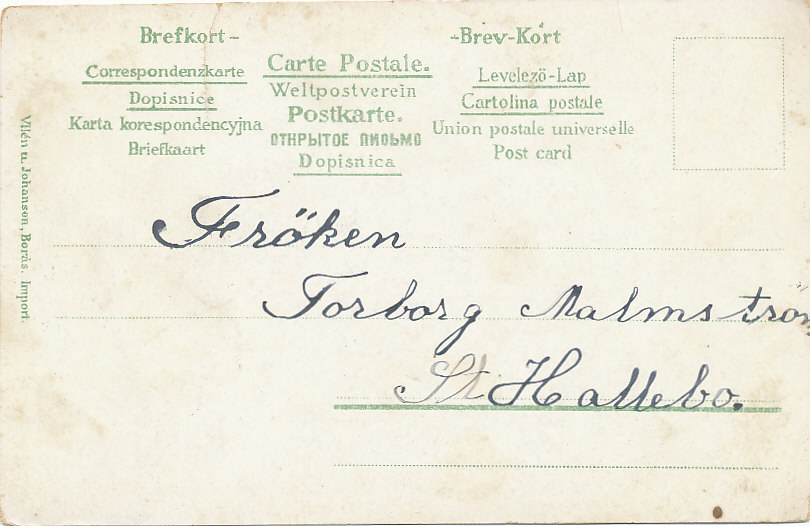 Brefkort -
Correspondenzkarte
Dopisnice
Karta korespondencyjna
Briefkaart
Carte Postale.
Weltpostverein
Postkarte.
ОТКРЫТОЕ ПИСЬМО
Dopisnica
-Brev-Kort
Levelező-Lap
Cartolina postale
Union postale universelle
Post card
Vilén u. Johanson, Borås. Import.
Fröken
Torborg Malmström
St Hallebo.